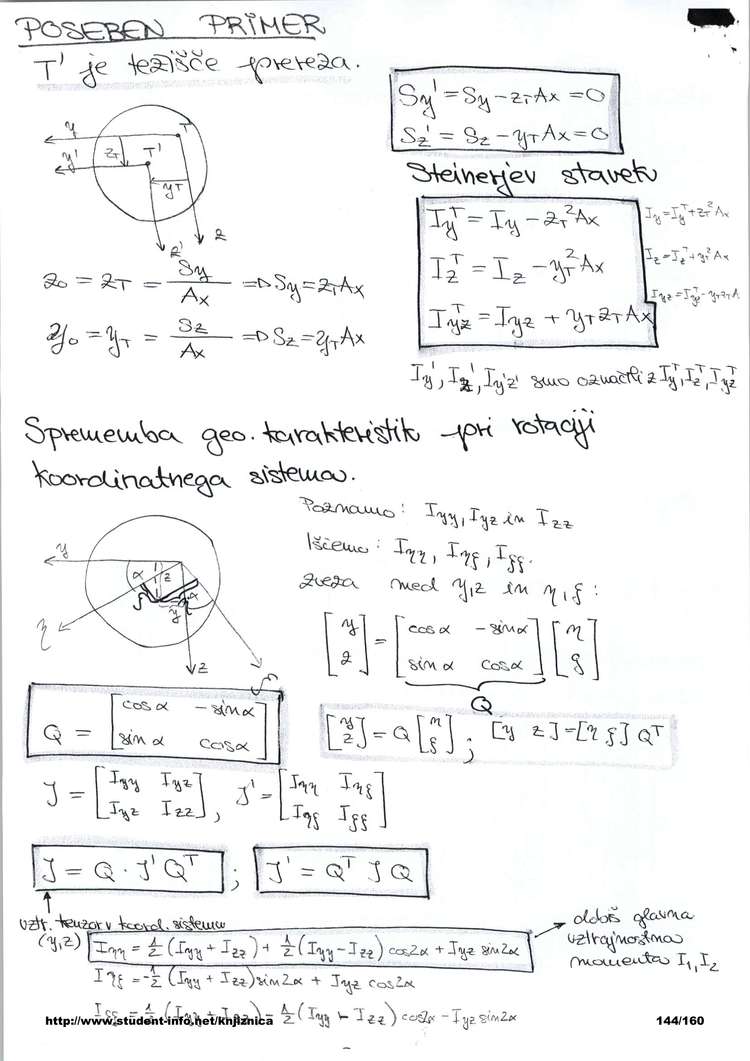 POSEBEN PRIMER
T' je težišče prereza.
Sy' = Sy - zT Ax = 0
Sz' = Sz - yT Ax = 0
y
T
y'
zT
T'
yT
z
z'
Steinerjev stavek
Iy^T = Iy - zT² Ax
Iy = Iy^T + zT² Ax
Iz^T = Iz - yT² Ax
Iz = Iz^T + yT² A
Iyz^T = Iyz + yT zT Ax
Iyz = Iyz^T - yT zT A
z0 = zT = Sy / Ax => Sy = zT Ax
y0 = yT = Sz / Ax => Sz = yT Ax
Iy', Iz', Iy'z' smo označili z Iy^T, Iz^T, Iyz^T
Sprememba geo. karakteristik pri rotaciji
koordinatnega sistema.
Poznamo: Iyy, Iyz in Izz
Iščemo: Iηη, Iηξ, Iξξ.
zveza med y,z in η,ξ:
y
α
z
ξ
y
η
α
η
z
ξ
[y z] = [cos α - sin α sin α cos α] [η ξ]
Q
Q = [cos α - sin α sin α cos α]
[y z] = Q [η ξ] ; [y z] = [η ξ] Q^T
J = [Iyy Iyz Iyz Izz], J' = [Iηη Iηξ Iηξ Iξξ]
J = Q · J' Q^T ; J' = Q^T J Q
vztr. tenzor v koord. sistemu
(y,z)
Iηη = 1/2 (Iyy + Izz) + 1/2 (Iyy - Izz) cos 2α + Iyz sin 2α
dobiš glavna
vztrajnostna
momenta I1, I2
Iηξ = -1/2 (Iyy + Izz) sin 2α + Iyz cos 2α
Iξξ = 1/2 (Iyy + Izz) - 1/2 (Iyy - Izz) cos 2α - Iyz sin 2α
http://www.student-info.net/knjiznica
144/160